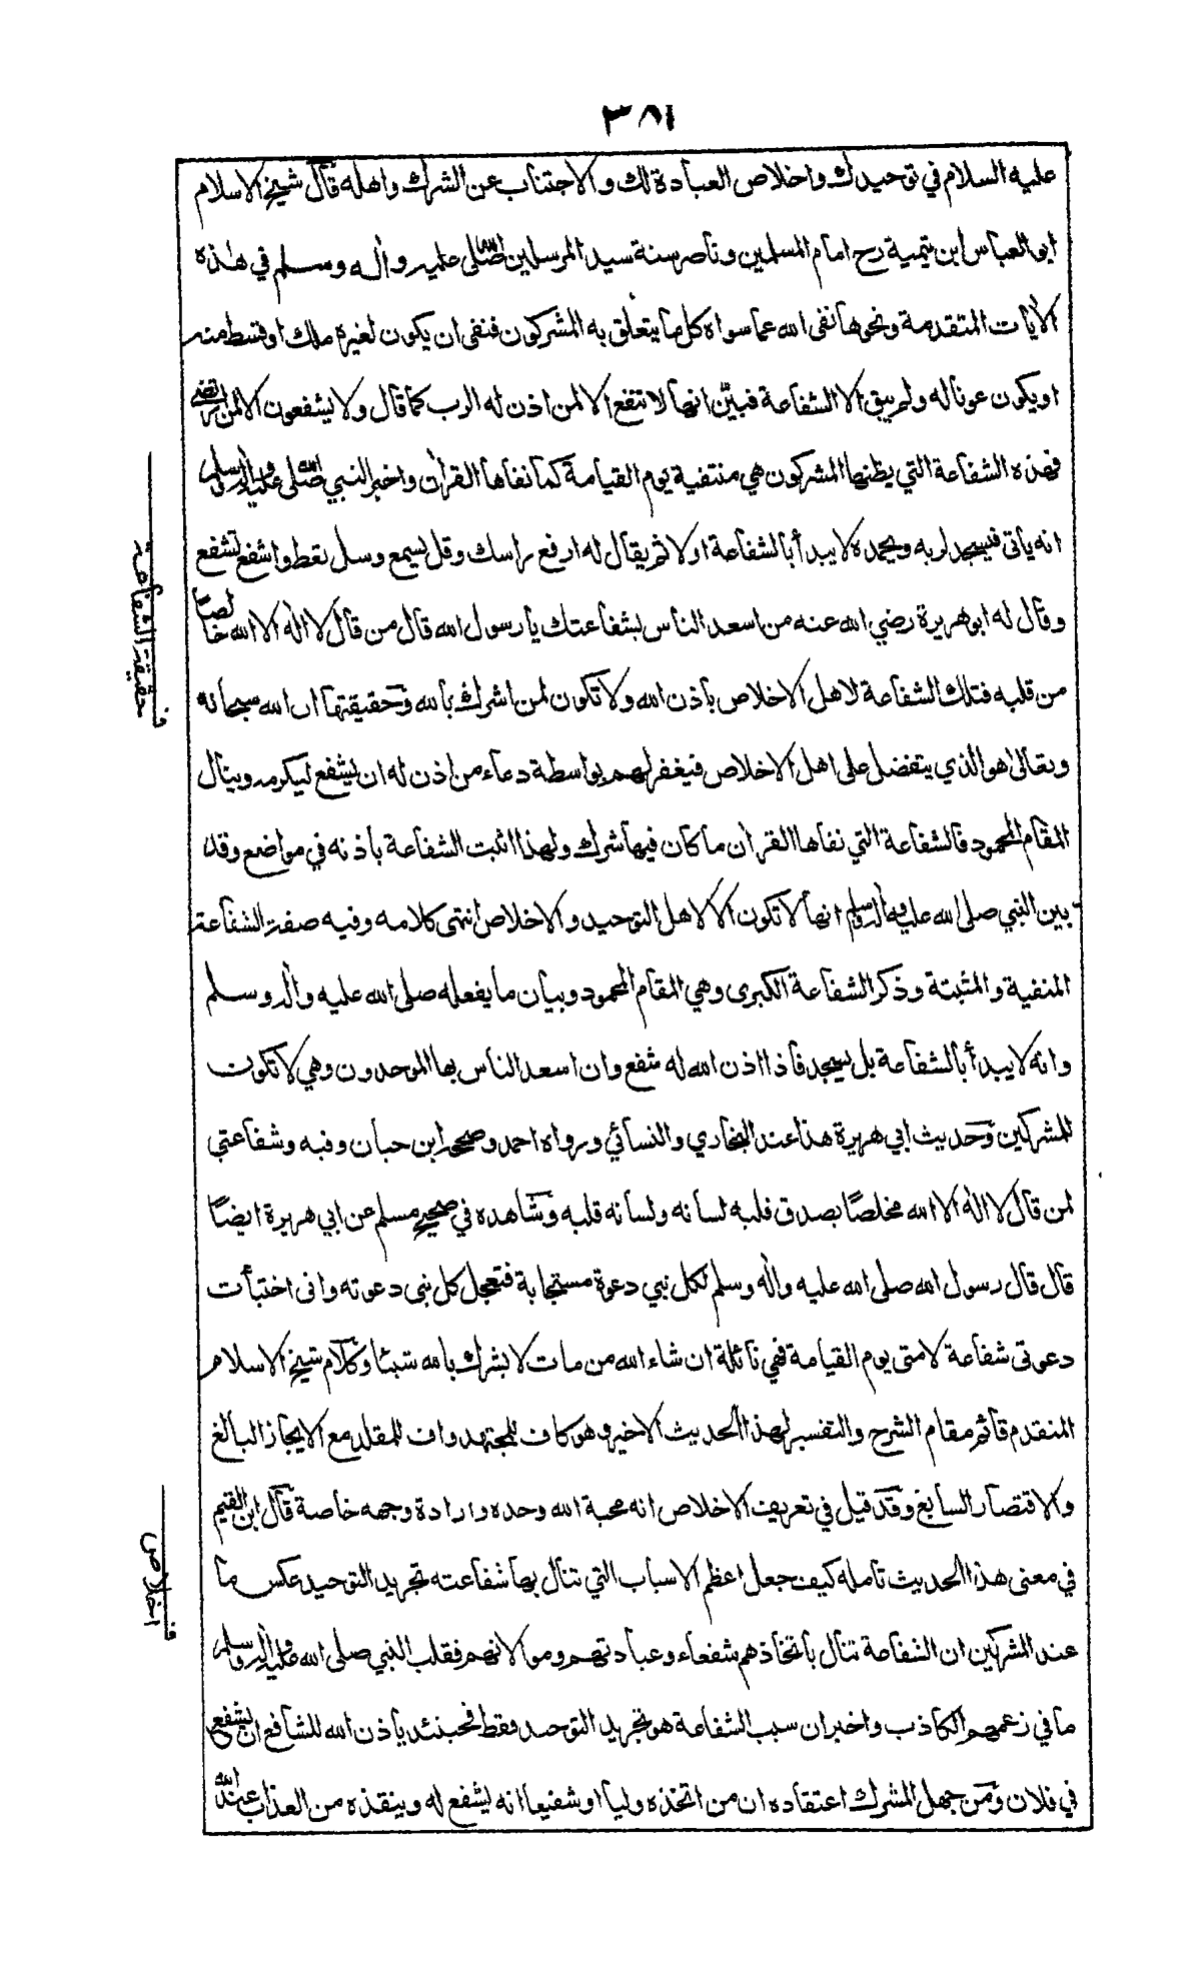 ٣٨١
عليه السلام في توحيدك واخلاص العبادة لك والاجتناب عن الشرك واهله قال شيخ الاسلام
ابو العباس ابن تيمية رح امام المسلمين وناصر سنة سيد المرسلين صلى الله عليه واله وسلم في هذه
الايات المتقدمة ونحوها نفى الله عما سواه كل ما يتعلق به المشركون فنفى ان يكون لغيره ملك او قسط منه
او يكون عونا له ولم يبق الا الشفاعة فبيّن انها لا تنفع الا لمن اذن له الرب كما قال ولا يشفعون الا لمن ارتضى
فهذه الشفاعة التي يظنها المشركون هي منتفية يوم القيامة كما نفاها القرأن واخبر النبي صلى الله عليه واله وسلم
انه ياتى فيسجد لربه ويحمده لا يبدأ بالشفاعة اولا ثم يقال له ارفع راسك وقل يسمع وسل تعط واشفع تشفع
وقال له ابو هريرة رضي الله عنه من اسعد الناس بشفاعتك يا رسول الله قال من قال لا اله الا الله خالصاً
من قلبه فتلك الشفاعة لاهل الاخلاص باذن الله ولا تكون لمن اشرك بالله وحقيقتها ان الله سبحانه
وتعالى هو الذي يتفضل على اهل الاخلاص فيغفر لهم بواسطة دعاء من اذن له ان يشفع ليكرمه وينال
المقام المحمود فالشفاعة التي نفاها القران ما كان فيها شرك ولهذا اثبت الشفاعة باذنه في مواضع وقد
بين النبي صلى الله عليه واله وسلم انها لا تكون الا لاهل التوحيد والاخلاص انتهى كلامه وفيه صفة الشفاعة
المنفية والمثبتة وذكر الشفاعة الكبرى وهي المقام المحمود وبيان ما يفعله صلى الله عليه واله وسلم
وانه لا يبدأ بالشفاعة بل يسجد فاذا اذن الله له شفع وان اسعد الناس بها الموحدون وهي لا تكون
للمشركين وحديث ابي هريرة هذا عند البخاري والنسائي ورواه احمد وصححه ابن حبان وفيه وشفاعتي
لمن قال لا اله الا الله مخلصًا بصدق قلبه لسانه ولسانه قلبه وشاهده في صحيح مسلم عن ابي هريرة ايضًا
قال قال رسول الله صلى الله عليه واله وسلم لكل نبي دعوة مستجابة فتعجل كل نبى دعوته وانى اختبأت
دعوتى شفاعة لامتى يوم القيامة فهي نائلة ان شاء الله من مات لا يشرك بالله شيئا وكلام شيخ الاسلام
المتقدم قائم مقام الشرح والتفسير لهذا الحديث الاخير وهو كاف للمجتهد واف للمقلد مع الايجاز البالغ
والاقتصار السابغ وقد قيل في تعريف الاخلاص انه محبة الله وحده وارادة وجهه خاصة قال ابن القيم
في معنى هذا الحديث تامله كيف جعل اعظم الاسباب التي تنال بها شفاعته تجريد التوحيد عكس ما
عند المشركين ان الشفاعة تنال باتخاذهم شفعاء وعبادتهم وموالاتهم فقلب النبي صلى الله عليه واله وسلم
ما في زعمهم الكاذب واخبر ان سبب الشفاعة هو تجريد التوحيد فقط فحينئذ ياذن الله للشافع ان يشفع
في فلان ومن جهل المشرك اعتقاده ان من اتخذه وليا او شفيعا انه يشفع له وينقذه من العذاب عند الله
ف حقيقة الشفاعة
ف اخلاص